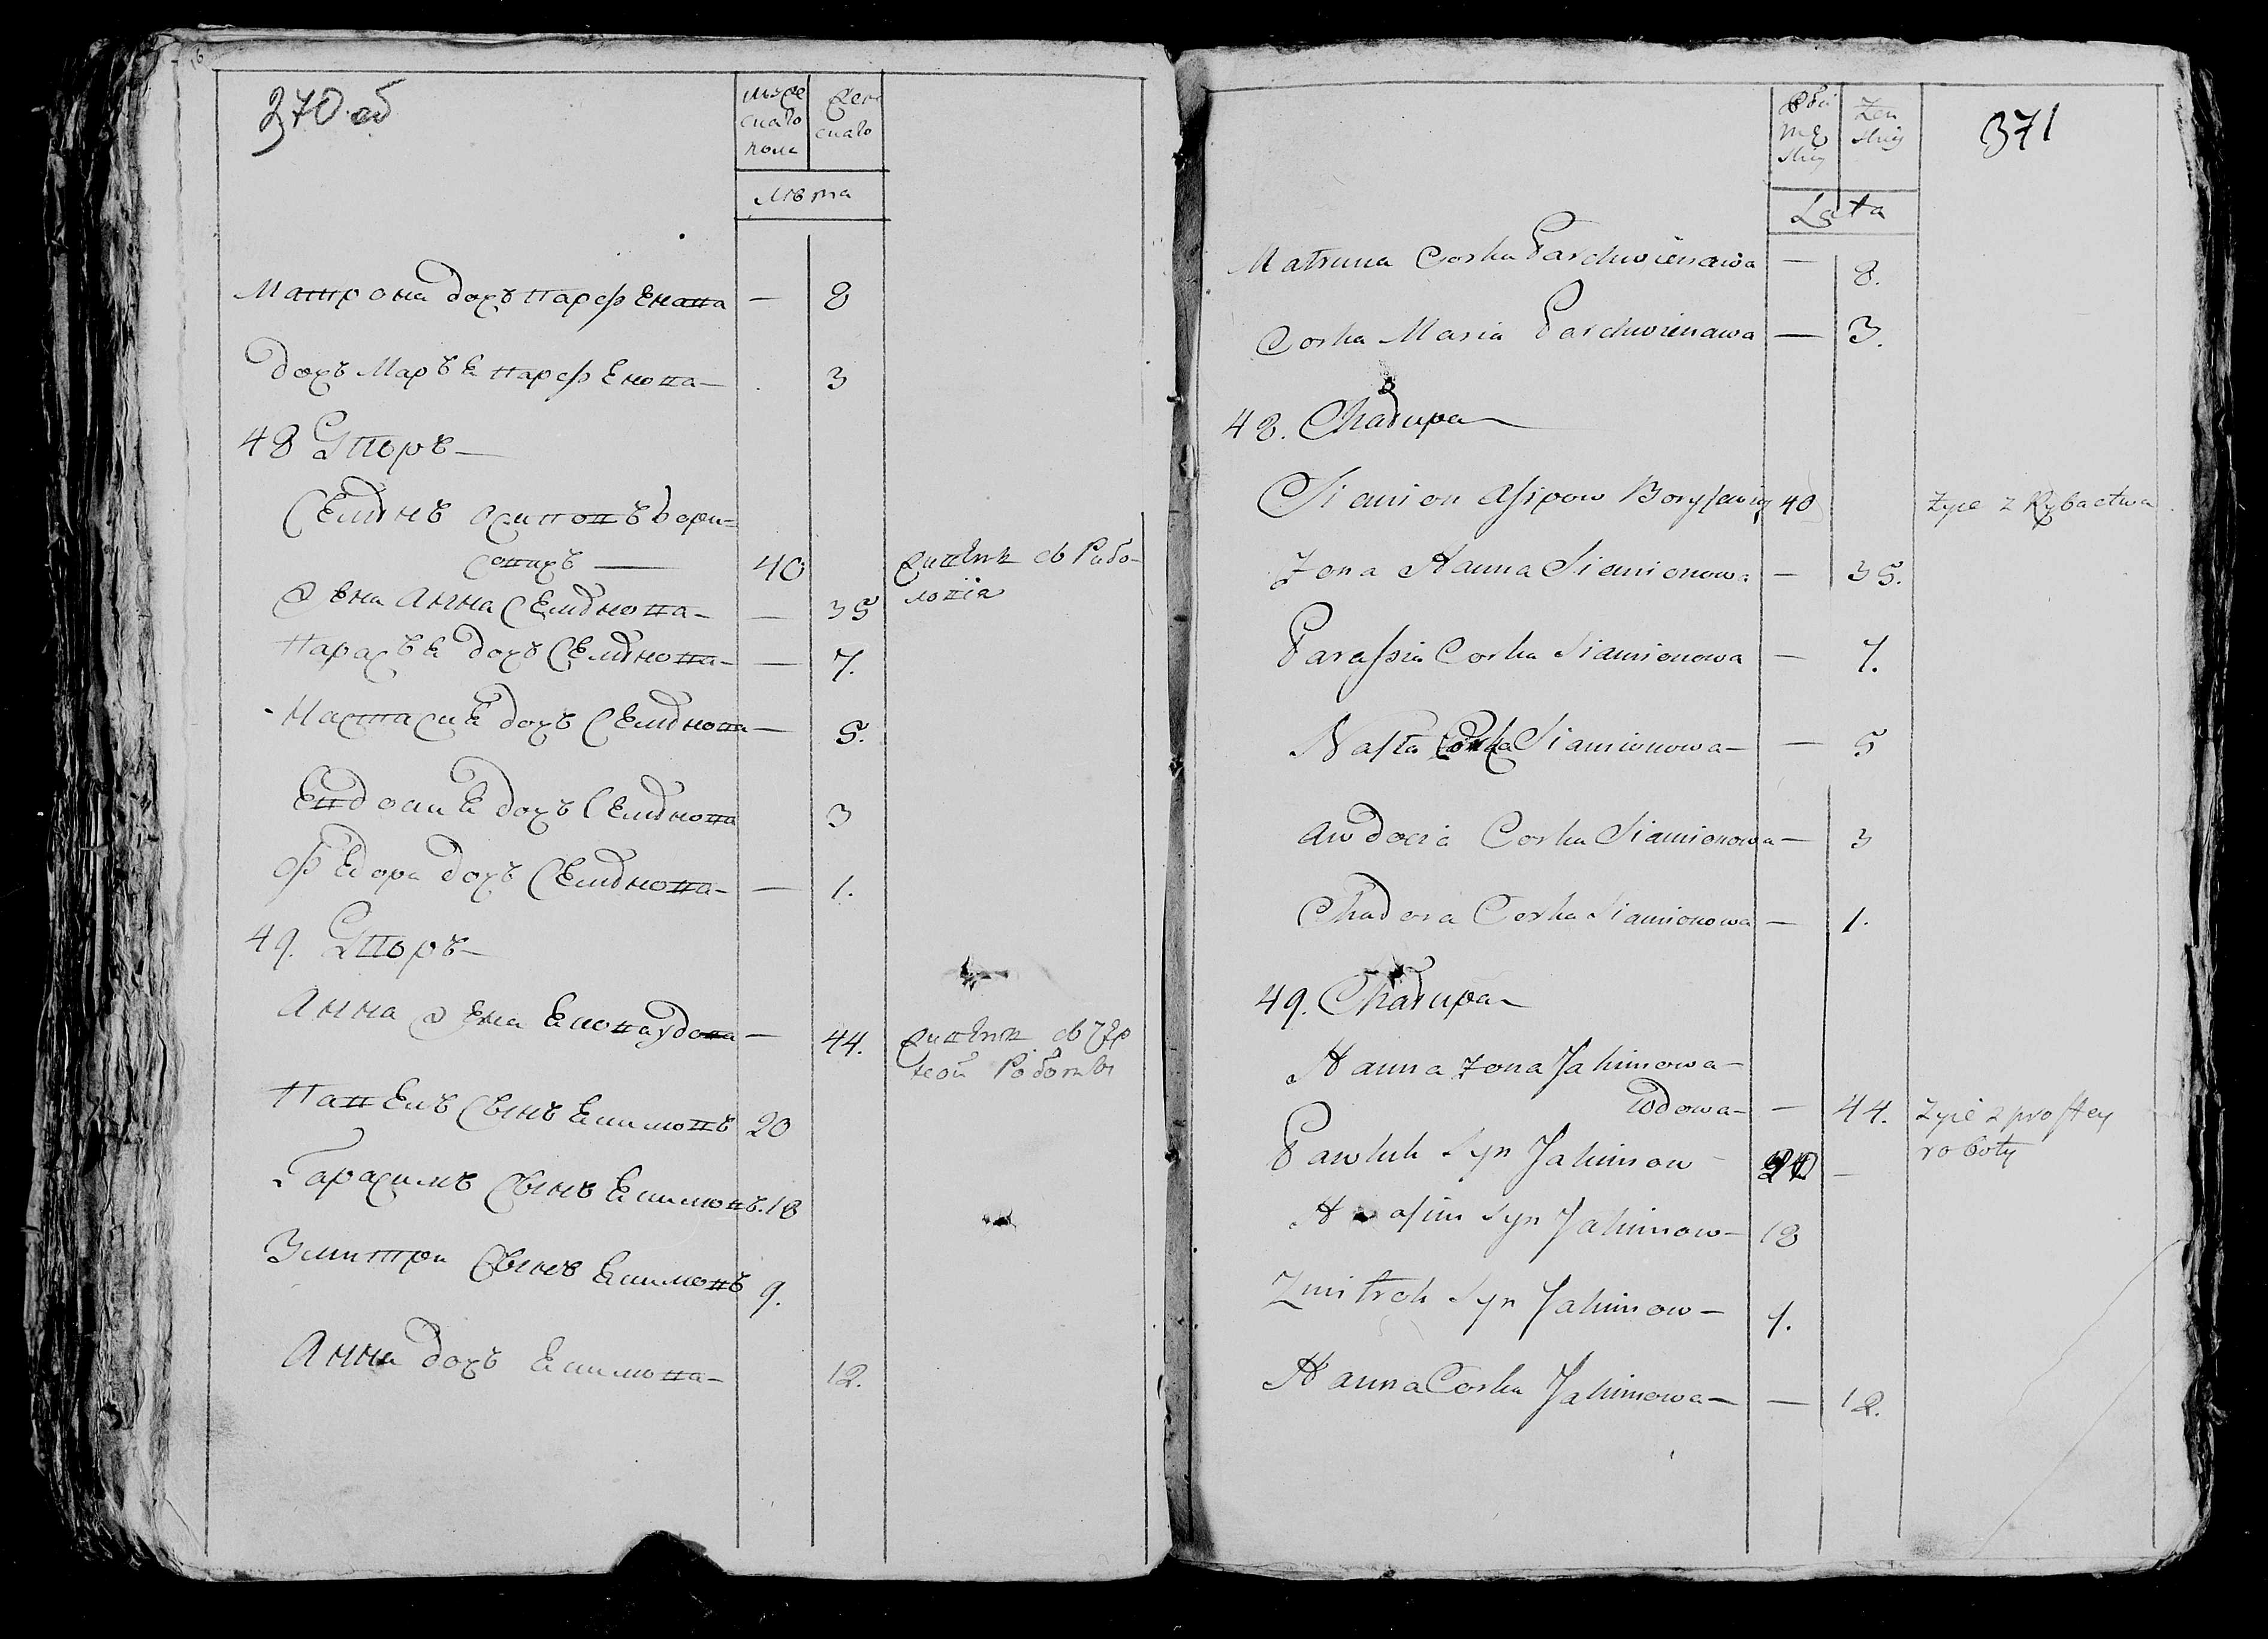 370 об
мужескаго пола
женскаго
Лѣта
Матрона дочь Парфенова — 8
дочь Марья Парфенова — 3
48 Дворъ —
Семіонъ Осиповъ Бори=
совичъ — 40 живетъ съ Рибо-
ловіа
Жена Анна Семіонова — — 35
Парасья дочь Семіонова — — 7.
Настасия дочь Семіонова — 5.
Евдосия дочь Семіонова 3
Федора дочь Семіонова — — 1.
49. Дворъ —
Анна Жена вдова — 44. живетъ съ чер
ной Работы
Павелъ Сынъ Екимовъ 20
Гарасимъ Сынъ Екимовъ. 18
Змитри Сынъ Екимовъ 9.
Анна дочь Екимова — 12.
371
Płci Męskiy
Żenskiy
Lata
Matruna Corka Parchwienawa — 8.
Corka Maria Parchwienawa — 3.
48. Chałupa
Siamion Asipow Borysewicz 40 Żyie z Rybactwa
Zona Hanna Siamionowa — 35.
Parassia Corka Siamionowa — 7.
Nasta Corka Siamionowa — — 5
Awdocia Corka Siamionowa — 3
Chadora Corka Siamionowa — 1.
49. Chałupa
Hanna Zona Jakimowa —
Wdowa — — 44. Żyie z prostey
roboty
Pawluk Syn Jakimow — 20 —
Harasim Syn Jakimow — 18
Zmitrok Syn Jakimow — 9.
Hanna Corka Jakimowa — — 12.